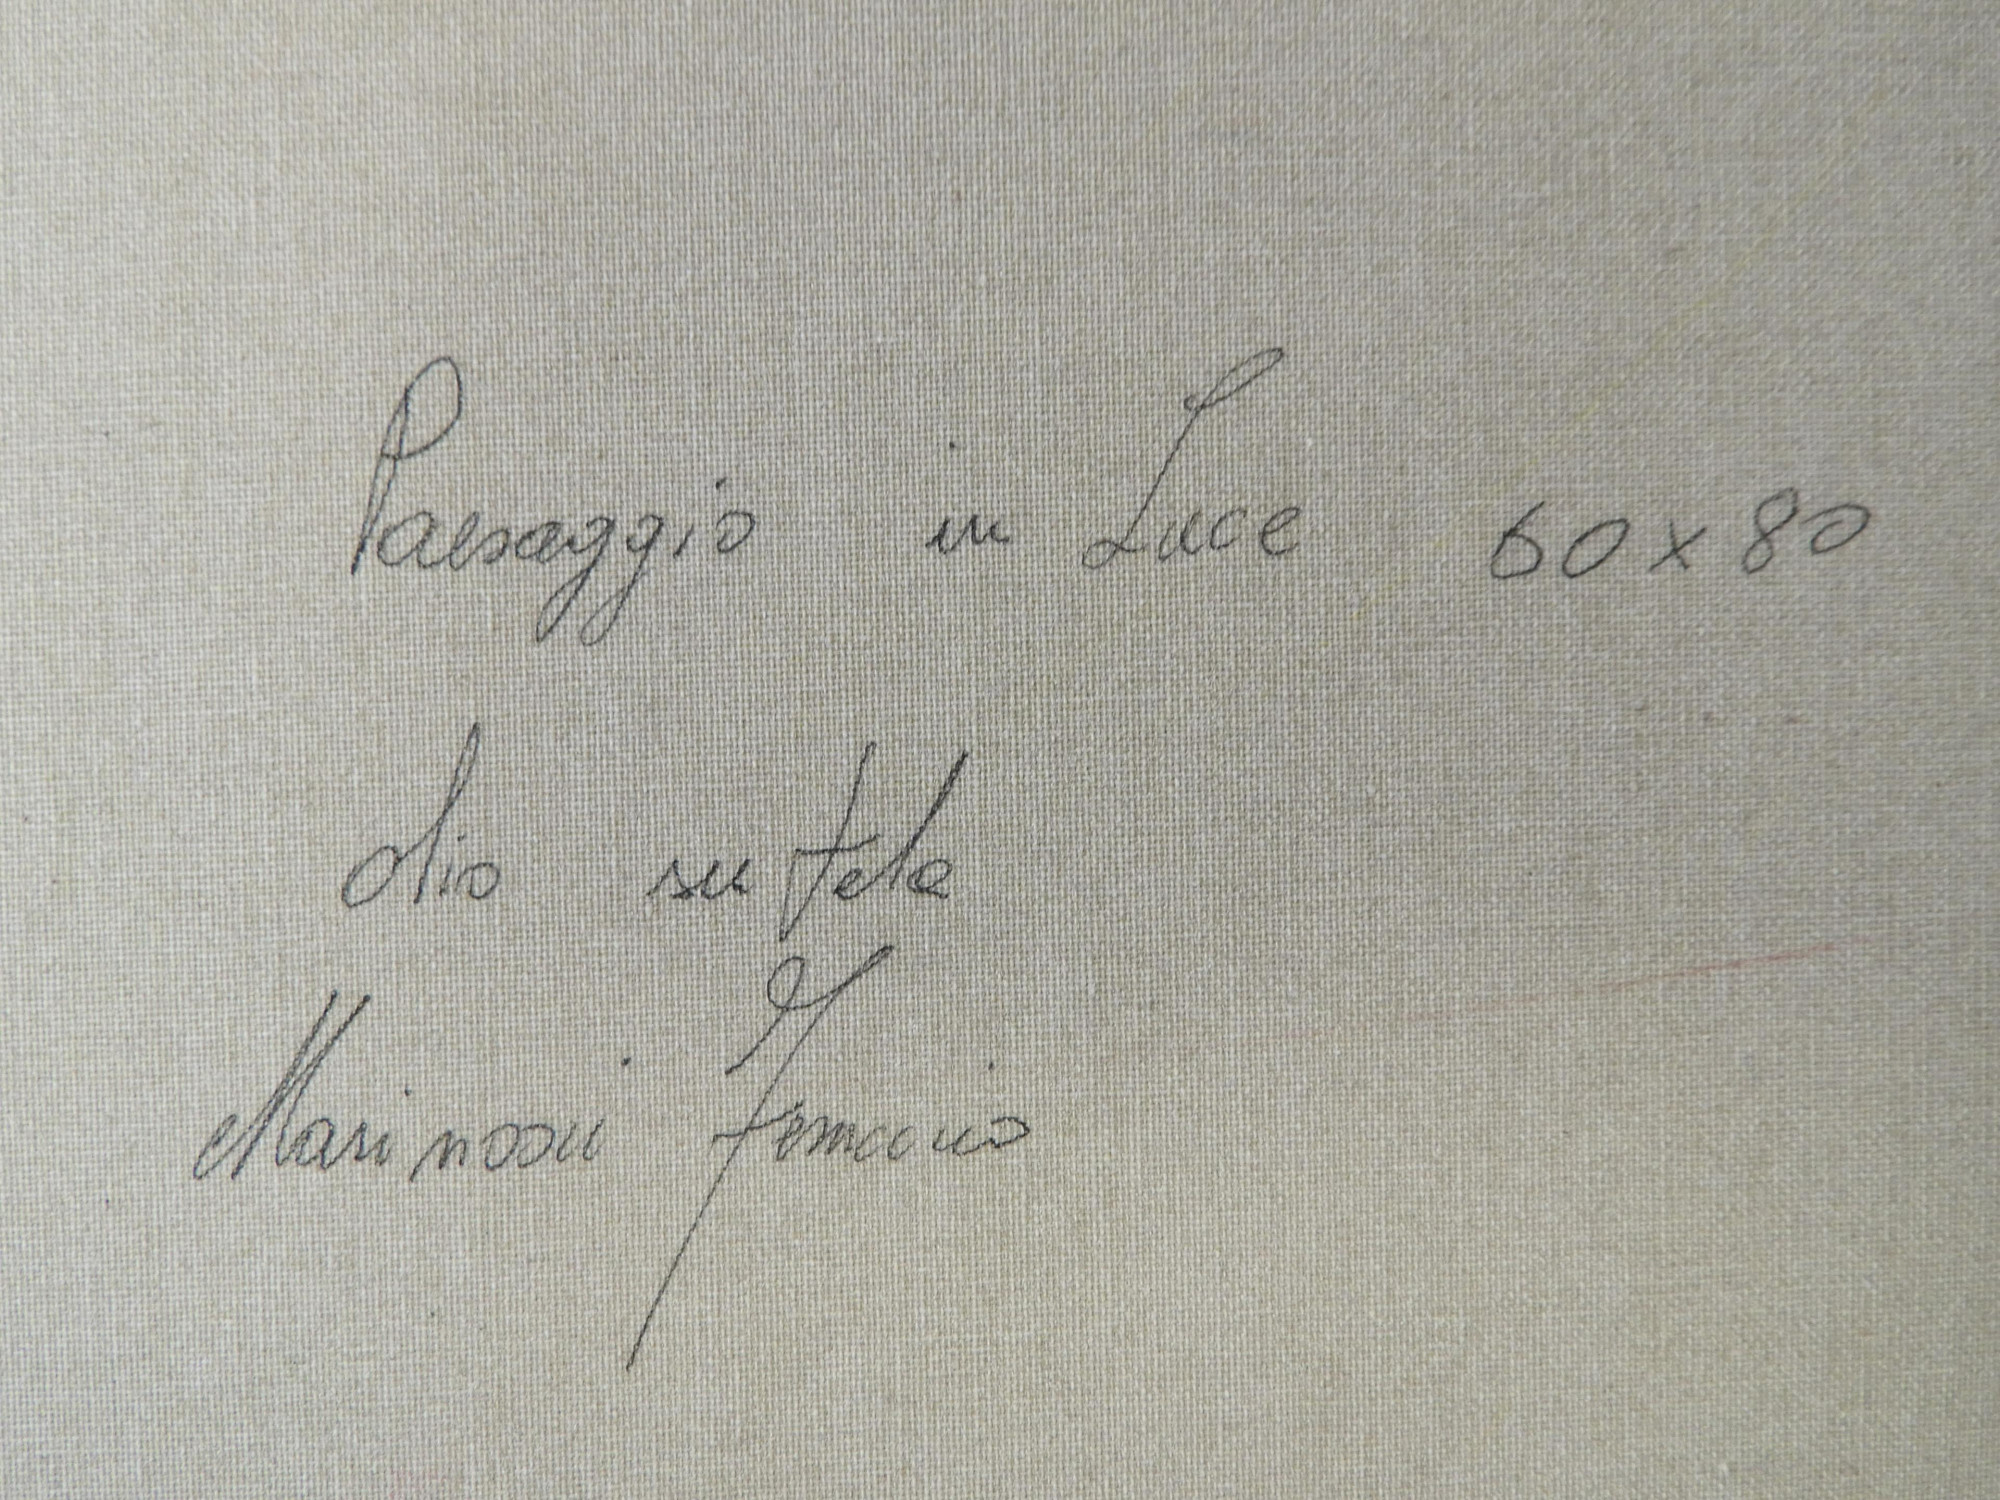 Paesaggio in Luce 60x80
olio su tela
Marinosci Ferruccio